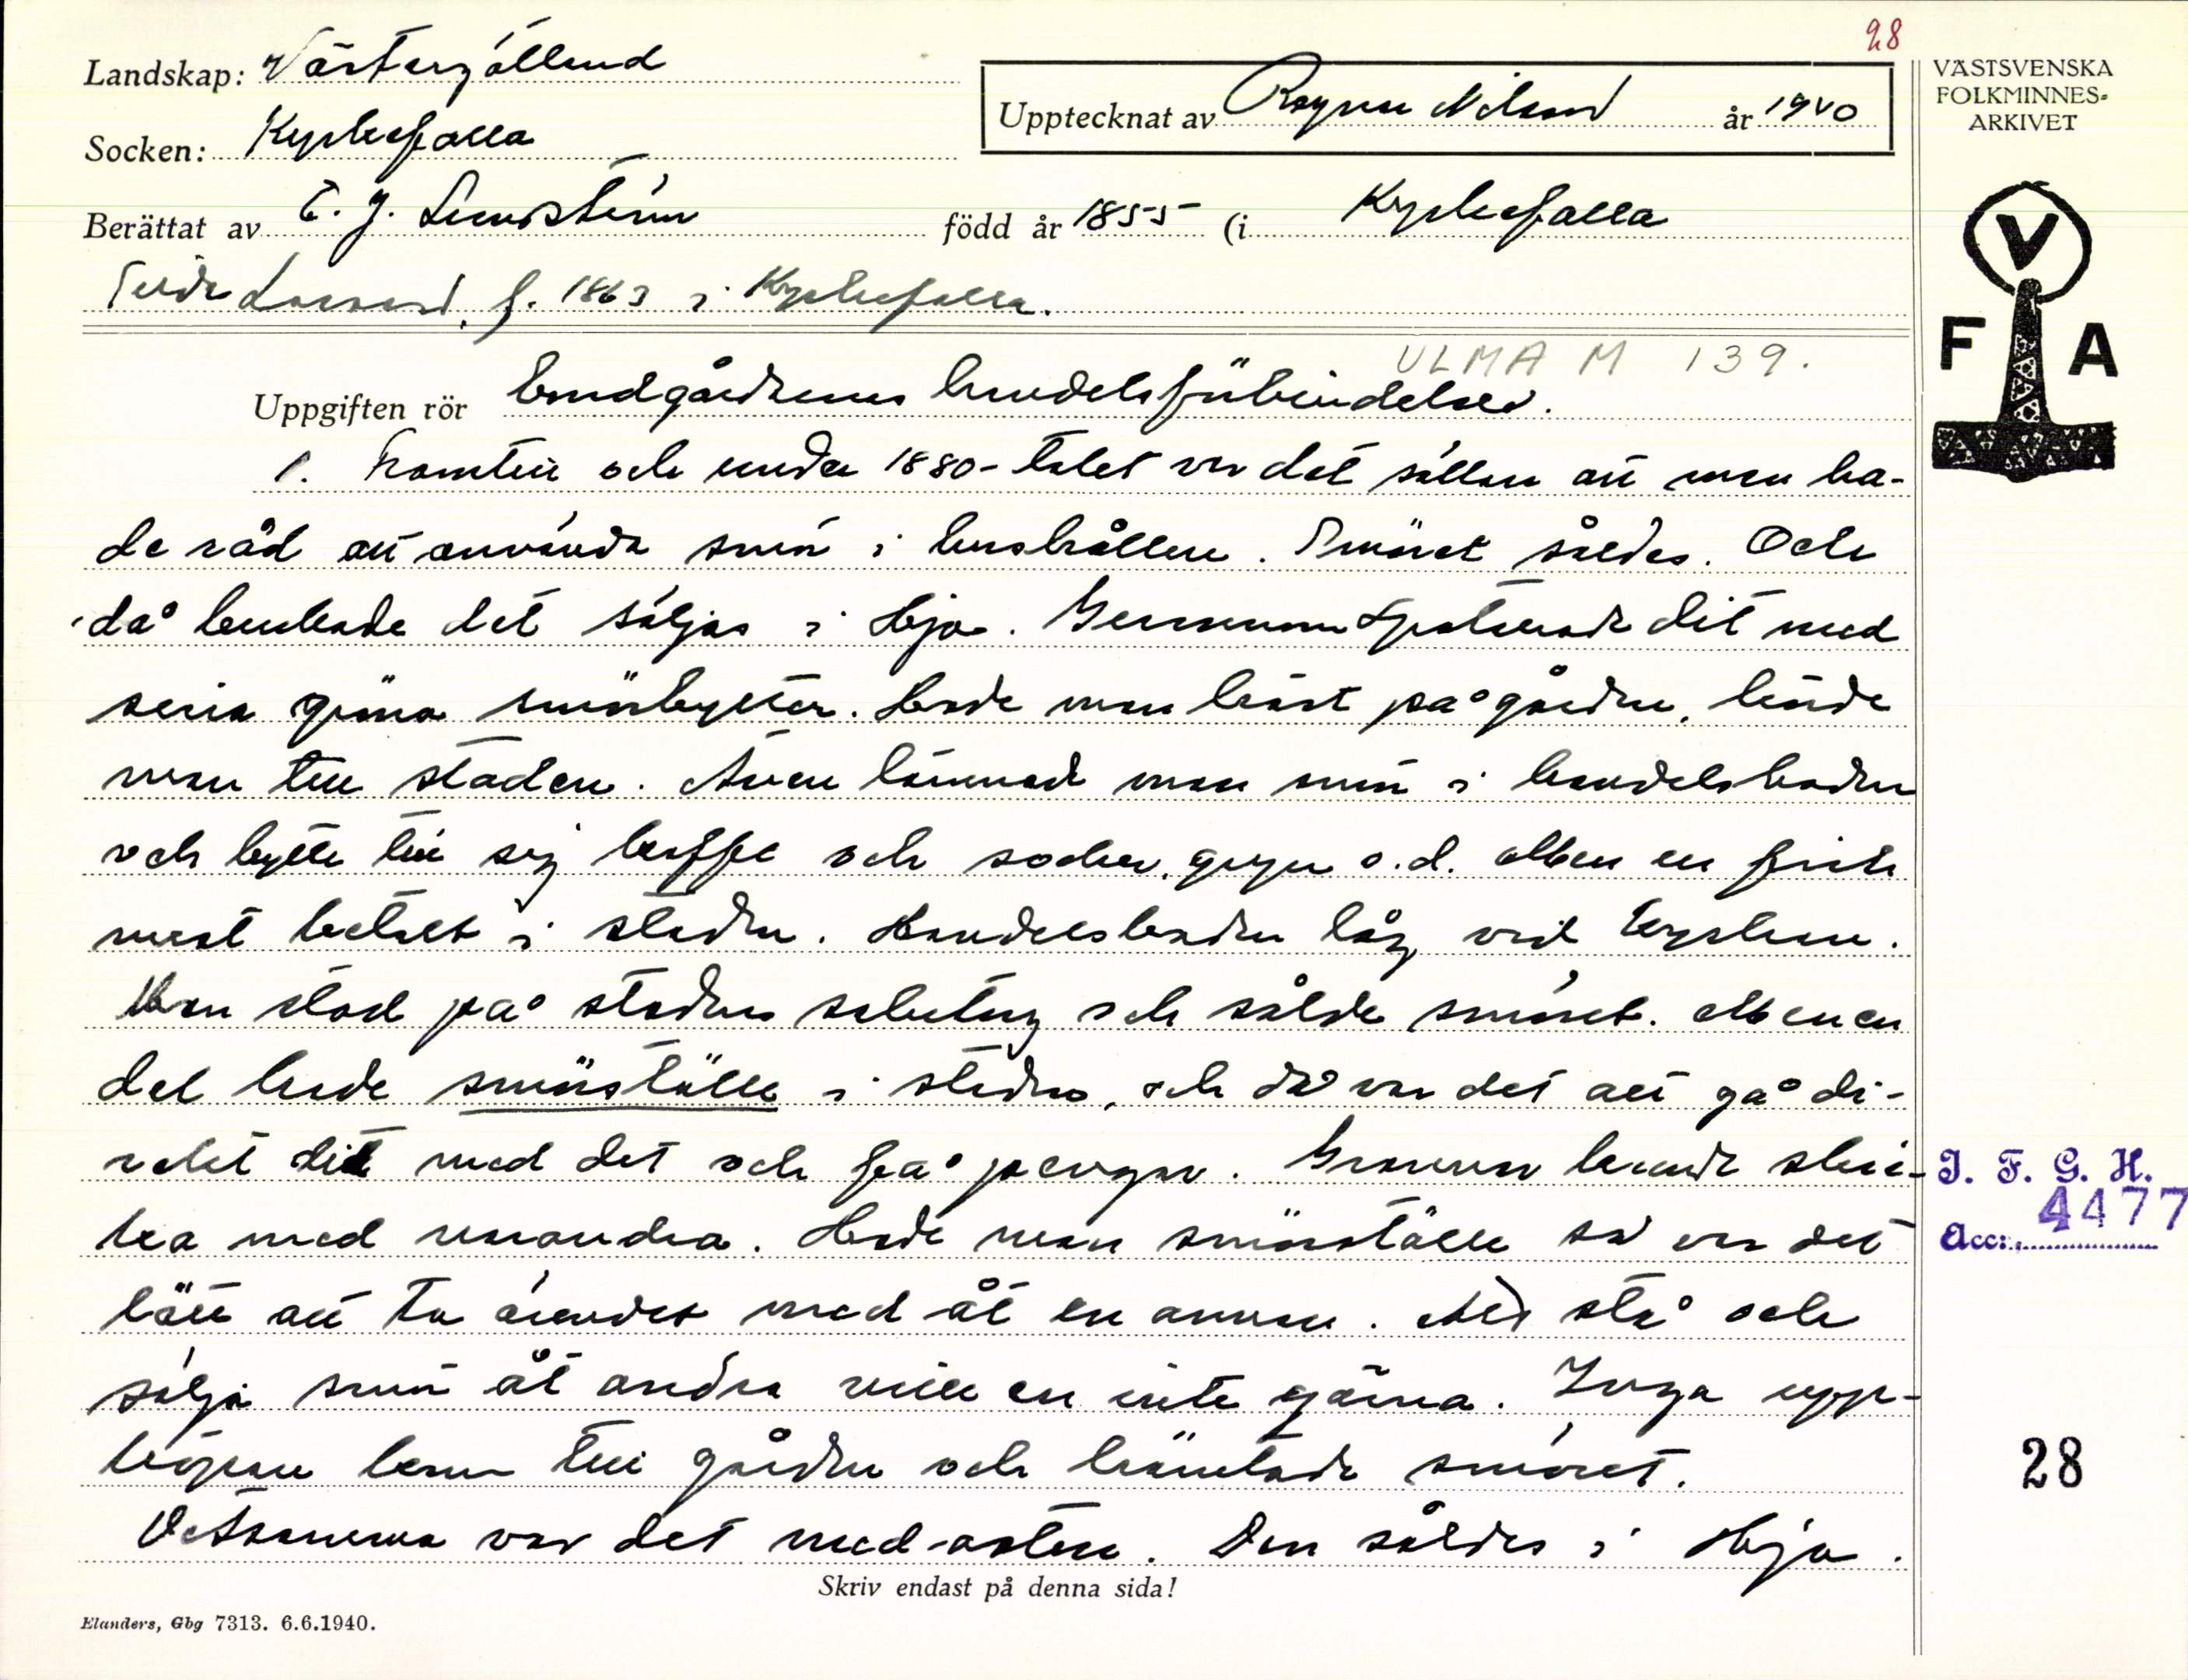 28
Landskap: Västergötland
Socken: Kyrkefalla
Upptecknat av Ragnar Nilsson år 1940
VÄSTSVENSKA
FOLKMINNES-
ARKIVET
Berättat av E. J. Lundstein född år 1855 (i Kyrkefalla
Frida Larsson, f. 1863 i Kyrkefalla.
V
F A
ULMA M 139.
Uppgiften rör Landgårdarnas handelsförbindelser.
1. Framtill och under 1880-talet var det sällan att man ha-
de råd att använda smör i hushållen. Smöret såldes. Och
då brukade det säljas i Hjo. Gummorna spatserade dit med
sina gröna smörbyttor. Hade man häst på gården, körde
man till staden. Även lämnade man smör i handelsboden
och bytte till sig kaffe och socker, gryn o.d. Men en fick
mest betalt i staden. Handelsboden låg vid kyrkan.
Man stod på stadens salutorg och sålde smöret. Men en
del hade smörställe i staden, och då var det att gå di-
rekt dit med det och få pengar. Grannar kunde skic-
ka med varandra. Hade man smörställe så var det
lätt att ta ärendet med åt en annan. Att stå och
sälja smör åt andra ville en inte gärna. Inga upp-
köpare kom till gården och hämtade smöret.
Detsamma var det med osten. Den såldes i Hjo.
I. F. G. H.
Acc: 4477
28
Skriv endast på denna sida!
Elanders, Gbg 7313. 6.6.1940.